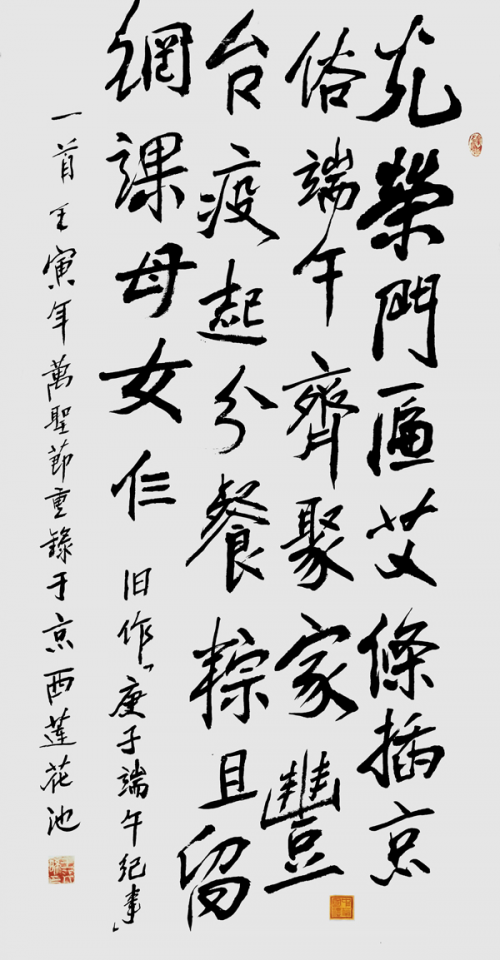 光榮門匾艾條插京
俗端午齊聚家豐
台疫起分餐粽且留
網課母女仨 旧作「庚子端午紀事」
一首壬寅年萬聖節重錄于京西蓮花池